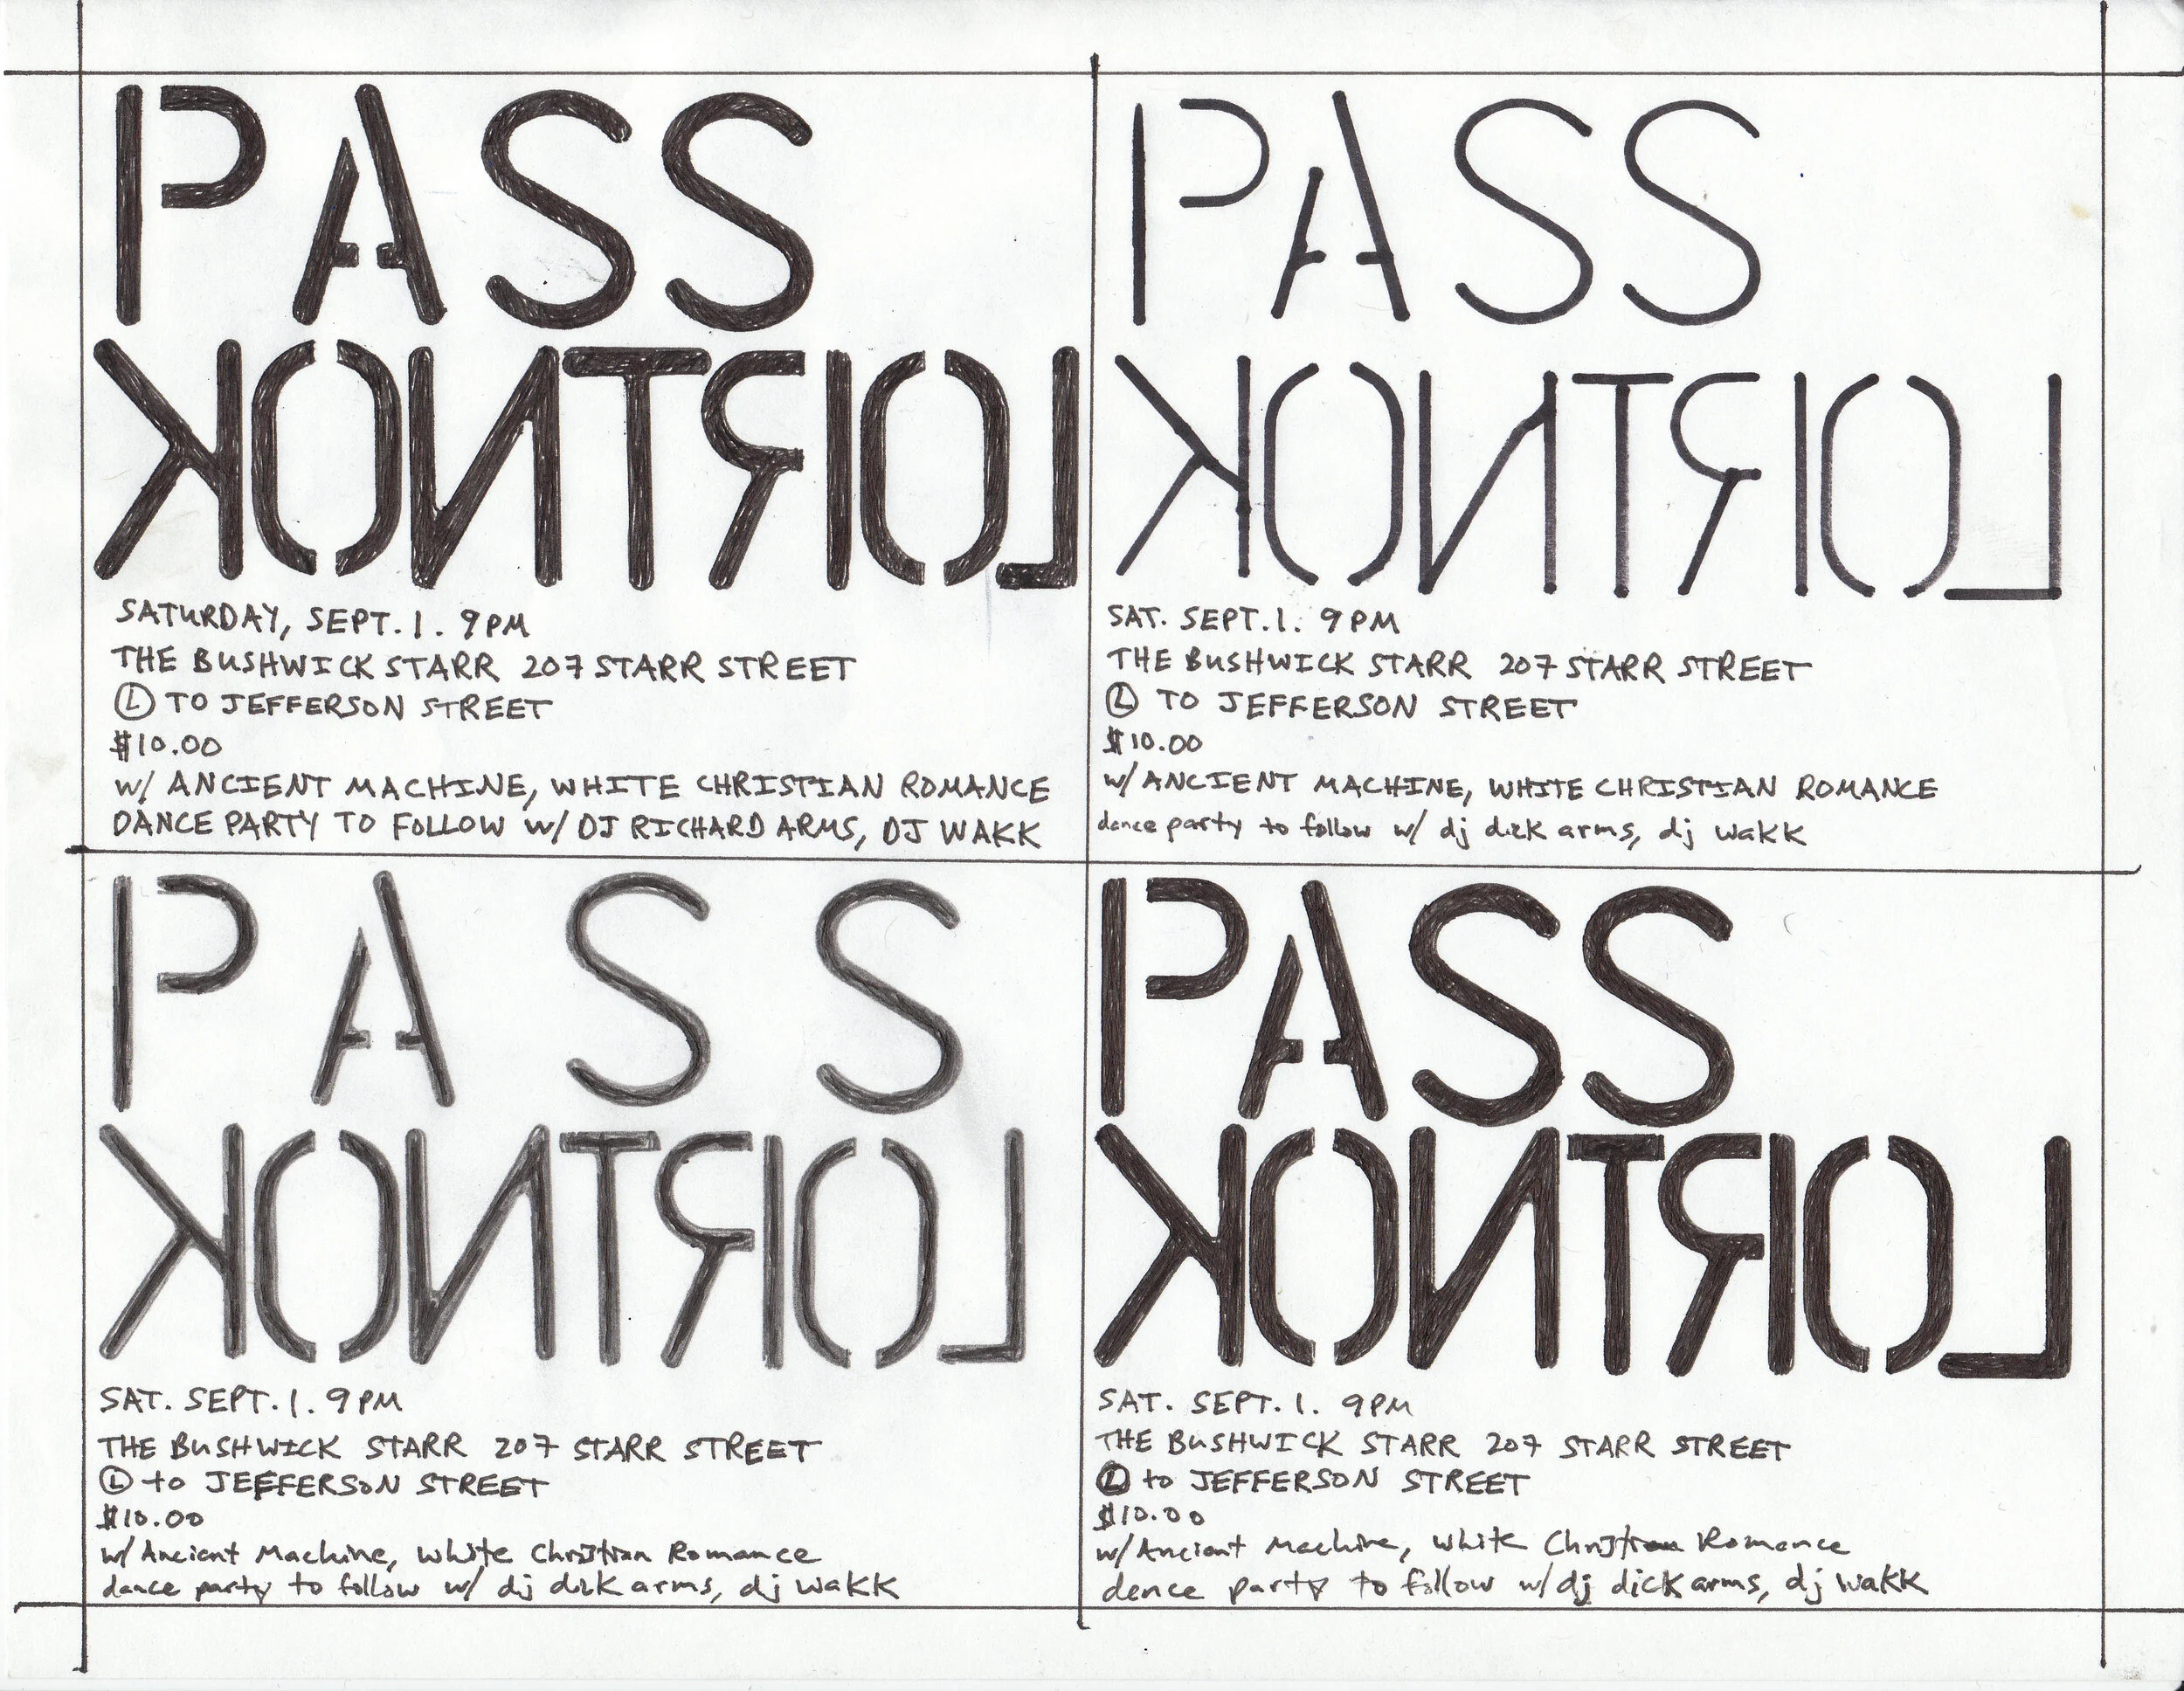 PASS
KONTROL
SATURDAY, SEPT. 1. 9PM
THE BUSHWICK STARR 207 STARR STREET
Ⓛ TO JEFFERSON STREET
$10.00
W/ ANCIENT MACHINE, WHITE CHRISTIAN ROMANCE
DANCE PARTY TO FOLLOW W/ DJ RICHARD ARMS, DJ WAKK
PASS
KONTROL
SAT. SEPT. 1. 9PM
THE BUSHWICK STARR 207 STARR STREET
Ⓛ TO JEFFERSON STREET
$10.00
W/ ANCIENT MACHINE, WHITE CHRISTIAN ROMANCE
dance party to follow w/ dj dick arms, dj wakk
PASS
KONTROL
SAT. SEPT. 1. 9PM
THE BUSHWICK STARR 207 STARR STREET
Ⓛ to JEFFERSON STREET
$10.00
w/ Ancient Machine, White Christian Romance
dance party to follow w/ dj dick arms, dj wakk
PASS
KONTROL
SAT. SEPT. 1. 9PM
THE BUSHWICK STARR 207 STARR STREET
Ⓛ to JEFFERSON STREET
$10.00
w/ Ancient Machine, White Christian Romance
dance party to follow w/ dj dick arms, dj wakk